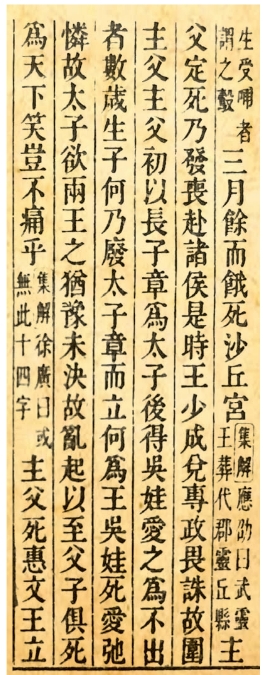 生受哺者謂之鷇三月餘而餓死沙丘宮集解應劭曰武靈王葬代郡靈丘縣主
父定死乃發喪赴諸侯是時王少成兌專政畏誅故圍
主父主父初以長子章爲太子後得吳娃愛之爲不出
者數歲生子何乃廢太子章而立何爲王吳娃死愛弛
憐故太子欲兩王之猶豫未決故亂起以至父子俱死
爲天下笑豈不痛乎集解徐廣曰或無此十四字主父死惠文王立